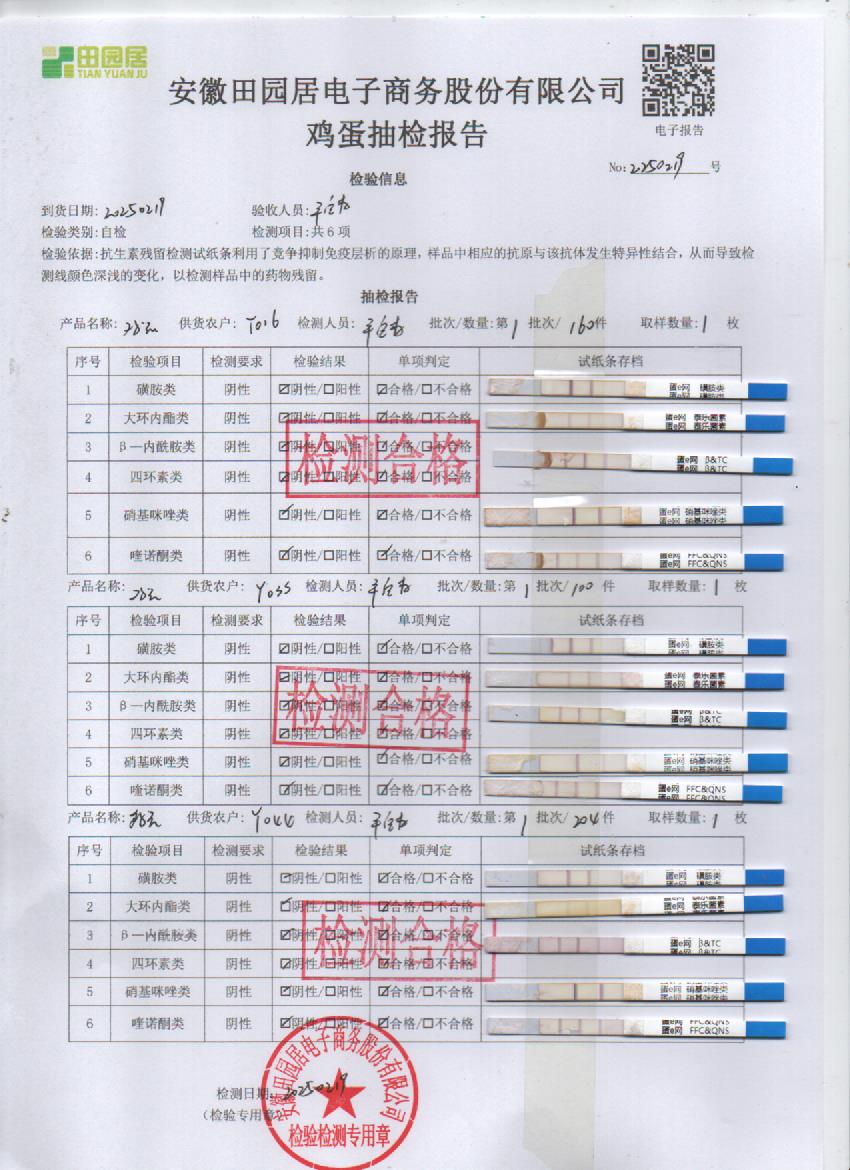 田园居
TIAN YUAN JU
安徽田园居电子商务股份有限公司
鸡蛋抽检报告
电子报告
No: 20250219 号
检验信息
到货日期: 20250219 验收人员:
检验类别:自检 检测项目:共6项
检验依据:抗生素残留检测试纸条利用了竞争抑制免疫层析的原理，样品中相应的抗原与该抗体发生特异性结合，从而导致检
测线颜色深浅的变化，以检测样品中的药物残留。
抽检报告
产品名称: 供货农户: Y016 检测人员: 批次/数量:第1批次/160件 取样数量:1 枚
序号 检验项目 检测要求 检验结果 单项判定 试纸条存档
1 磺胺类 阴性 ☑阴性/☐阳性 ☑合格/☐不合格 蛋e网 磺胺类
2 大环内酯类 阴性 ☑阴性/☐阳性 ☑合格/☐不合格 蛋e网 泰乐菌素
3 β—内酰胺类 阴性 ☑阴性/☐阳性 ☑合格/☐不合格 蛋e网 β&TC
4 四环素类 阴性 ☑阴性/☐阳性 ☑合格/☐不合格
检测合格
5 硝基咪唑类 阴性 ☑阴性/☐阳性 ☑合格/☐不合格 蛋e网 硝基咪唑类
6 喹诺酮类 阴性 ☑阴性/☐阳性 ☑合格/☐不合格 蛋e网 FFC&QNS
产品名称: 供货农户: Y055 检测人员: 批次/数量:第1批次/100件 取样数量:1 枚
序号 检验项目 检测要求 检验结果 单项判定 试纸条存档
1 磺胺类 阴性 ☑阴性/☐阳性 ☑合格/☐不合格 蛋e网 磺胺类
2 大环内酯类 阴性 ☑阴性/☐阳性 ☑合格/☐不合格 蛋e网 泰乐菌素
3 β—内酰胺类 阴性 ☑阴性/☐阳性 ☑合格/☐不合格 蛋e网 β&TC
4 四环素类 阴性 ☑阴性/☐阳性 ☑合格/☐不合格
检测合格
5 硝基咪唑类 阴性 ☑阴性/☐阳性 ☑合格/☐不合格 蛋e网 硝基咪唑类
6 喹诺酮类 阴性 ☑阴性/☐阳性 ☑合格/☐不合格 蛋e网 FFC&QNS
产品名称: 供货农户: Y044 检测人员: 批次/数量:第1批次/204件 取样数量:1 枚
序号 检验项目 检测要求 检验结果 单项判定 试纸条存档
1 磺胺类 阴性 ☑阴性/☐阳性 ☑合格/☐不合格 蛋e网 磺胺类
2 大环内酯类 阴性 ☑阴性/☐阳性 ☑合格/☐不合格 蛋e网 泰乐菌素
3 β—内酰胺类 阴性 ☑阴性/☐阳性 ☑合格/☐不合格 蛋e网 β&TC
4 四环素类 阴性 ☑阴性/☐阳性 ☑合格/☐不合格
检测合格
5 硝基咪唑类 阴性 ☑阴性/☐阳性 ☑合格/☐不合格 蛋e网 硝基咪唑类
6 喹诺酮类 阴性 ☑阴性/☐阳性 ☑合格/☐不合格 蛋e网 FFC&QNS
检测日期: 20250219
（检验专用章）
安徽田园居电子商务股份有限公司
检验检测专用章